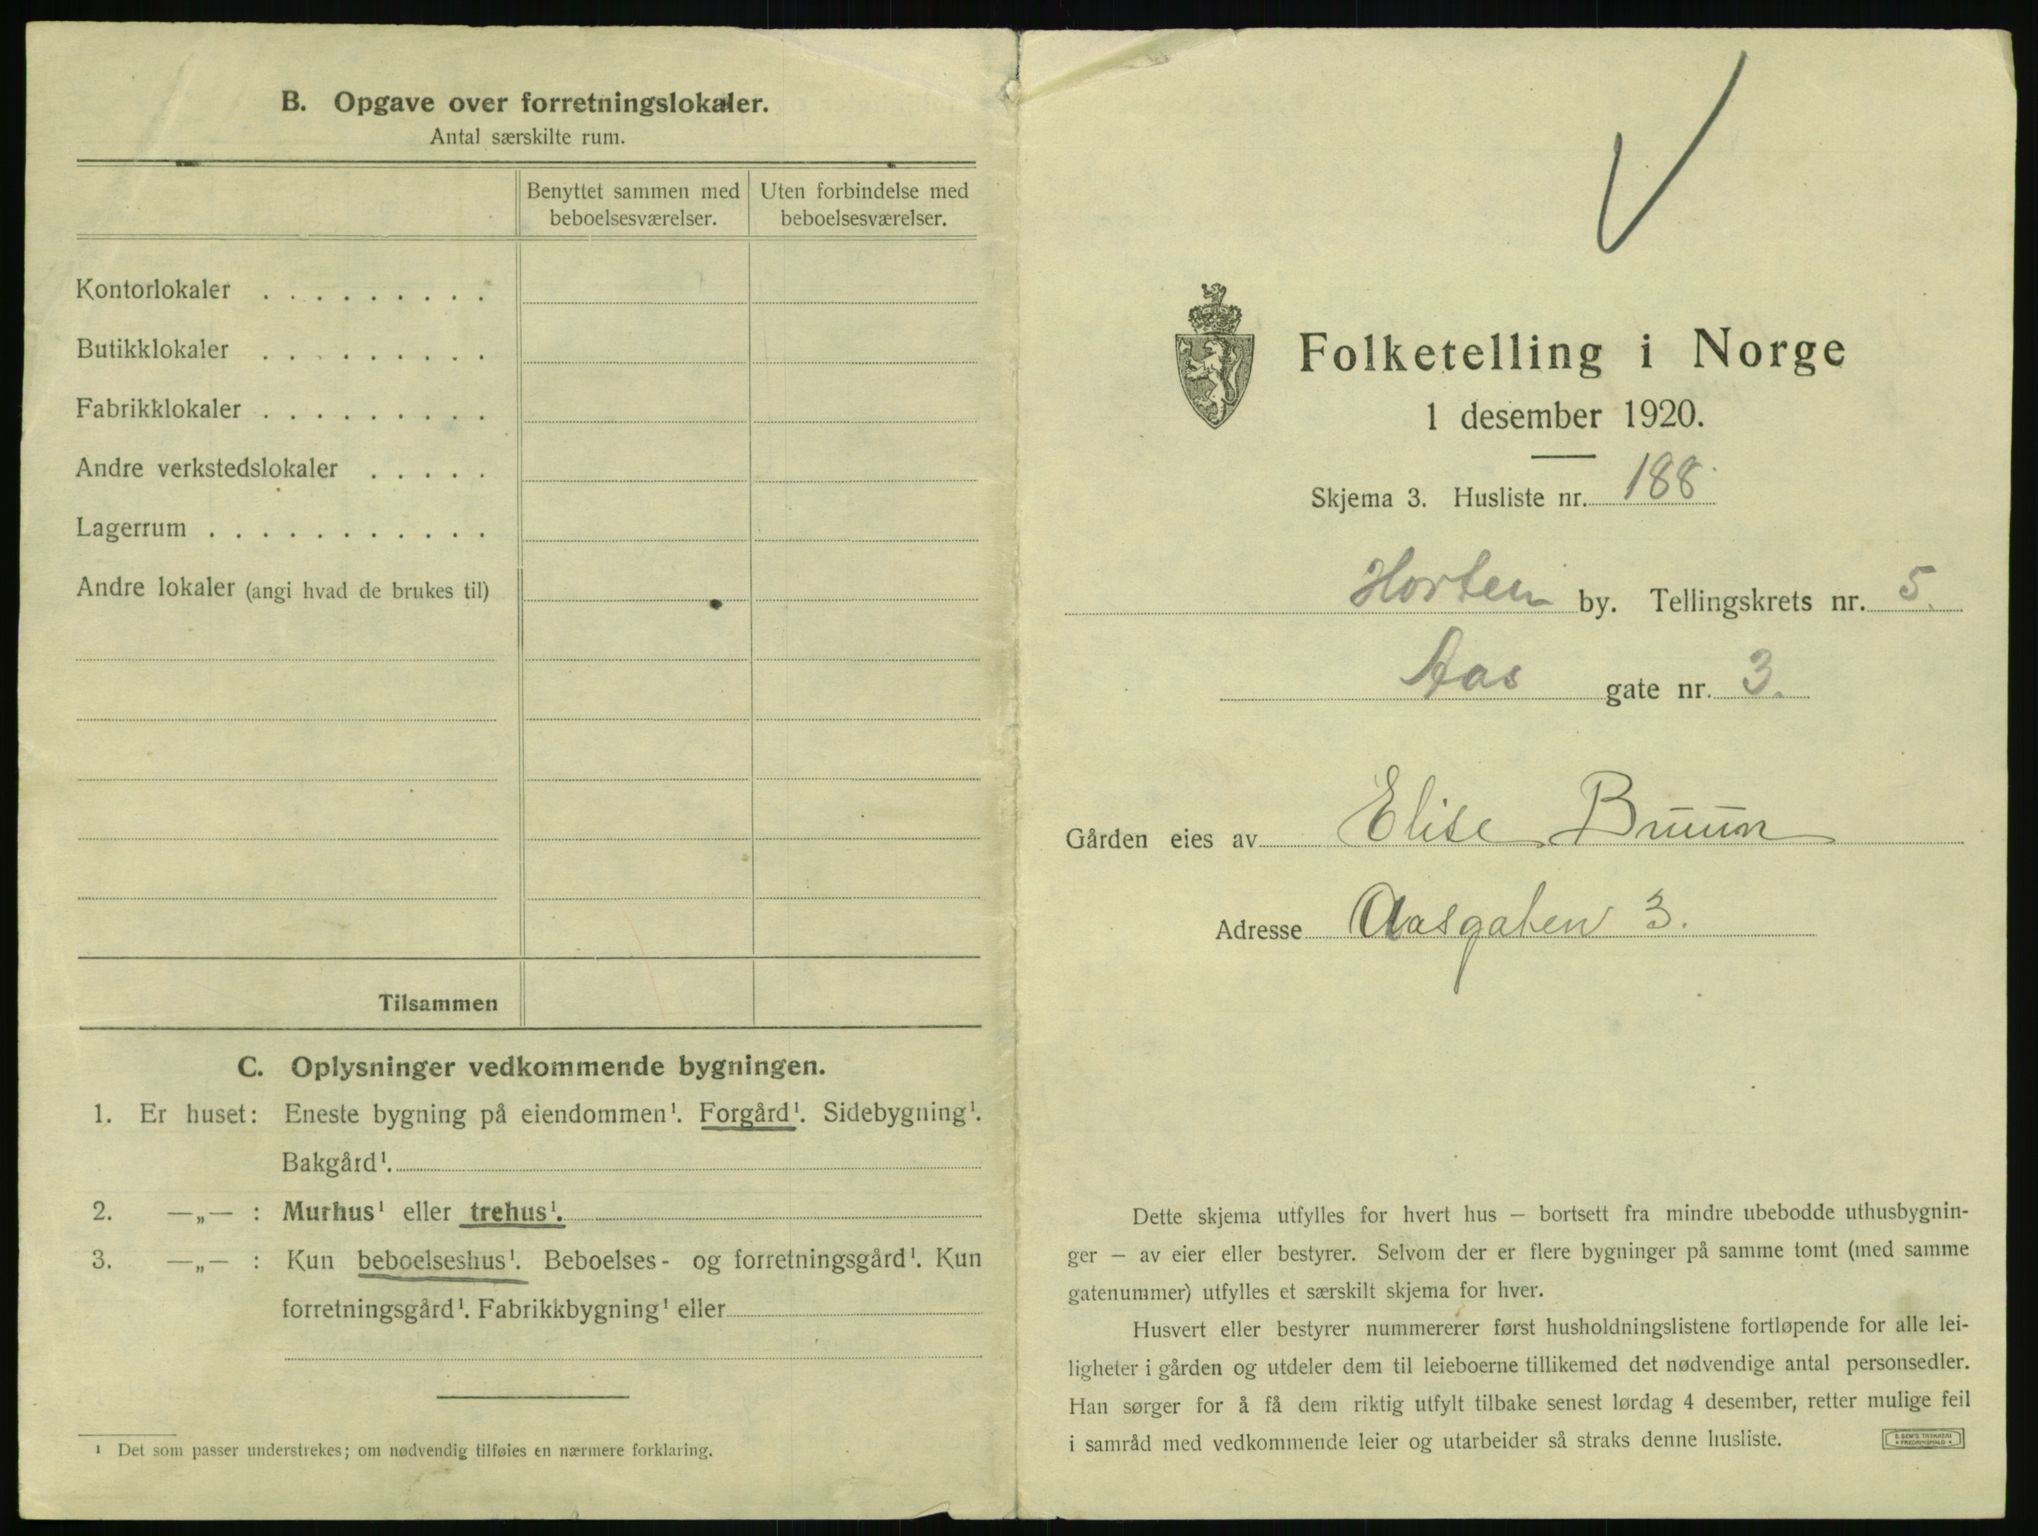 B. Opgave over forretningslokaler.
Antal særskilte rum.
Benyttet sammen med beboelsesværelser.
Uten forbindelse med beboelsesværelser.
Kontorlokaler . . . . . . . . .
Butikklokaler . . . . . . . . .
Fabrikklokaler . . . . . . . . .
Andre verkstedslokaler . . . . .
Lagerrum . . . . . . . . . . .
Andre lokaler (angi hvad de brukes til)
Tilsammen
C. Oplysninger vedkommende bygningen.
1. Er huset: Eneste bygning på eiendommen¹. Forgård¹. Sidebygning¹.
Bakgård¹.
2. —„— : Murhus¹ eller trehus¹.
3. —„— : Kun beboelseshus¹. Beboelses- og forretningsgård¹. Kun
forretningsgård¹. Fabrikkbygning¹ eller
¹ Det som passer understrekes; om nødvendig tilføies en nærmere forklaring.
Folketelling i Norge
1 desember 1920.
Skjema 3. Husliste nr. 188
Horten by. Tellingskrets nr. 5.
Aas gate nr. 3.
Gården eies av Elise Bruun
Adresse Aasgaten 3.
Dette skjema utfylles for hvert hus – bortsett fra mindre ubebodde uthusbygnin-
ger – av eier eller bestyrer. Selvom der er flere bygninger på samme tomt (med samme
gatenummer) utfylles et særskilt skjema for hver.
Husvert eller bestyrer nummererer først husholdningslistene fortløpende for alle lei-
ligheter i gården og utdeler dem til leieboerne tillikemed det nødvendige antal personsedler.
Han sørger for å få dem riktig utfylt tilbake senest lørdag 4 desember, retter mulige feil
i samråd med vedkommende leier og utarbeider så straks denne husliste.